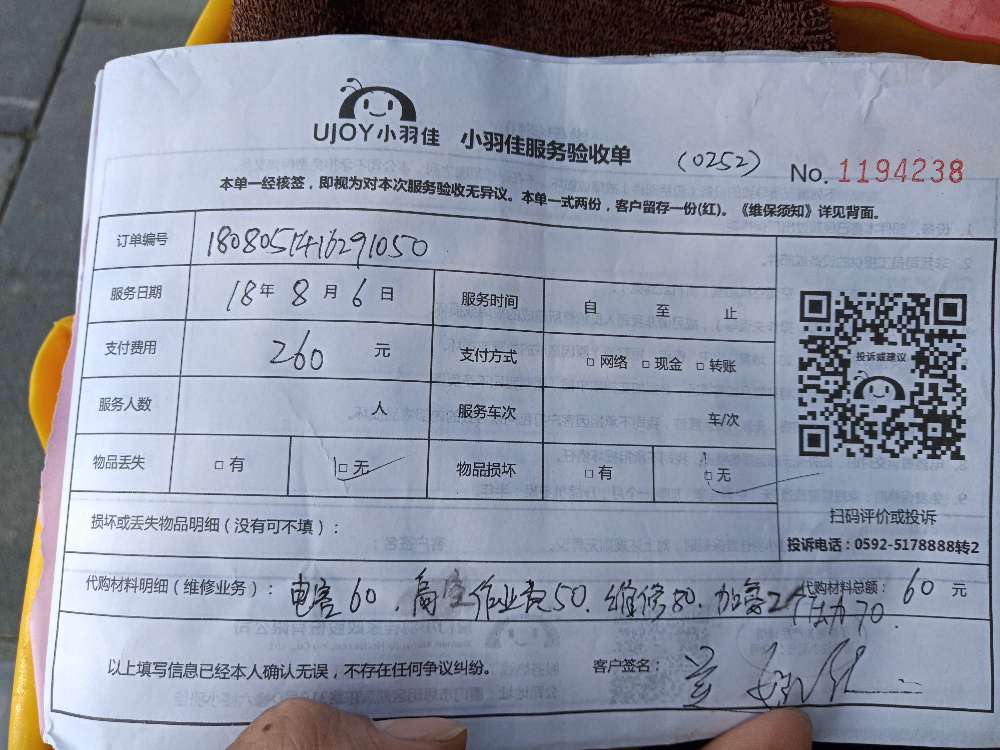 UJOY小羽佳 小羽佳服务验收单 (0252) No. 1194238
本单一经核签，即视为对本次服务验收无异议。本单一式两份，客户留存一份(红)。《维保须知》详见背面。
订单编号 1808051416291050
服务日期 18年 8 月 6 日 服务时间 自 至 止
支付费用 260 元 支付方式 □ 网络 □ 现金 □ 转账
投诉或建议
服务人数 人 服务车次 车/次
物品丢失 □ 有 □ 无 物品损坏 □ 有 □ 无
扫码评价或投诉
损坏或丢失物品明细（没有可不填）：
投诉电话：0592-5178888转2
代购材料明细（维修业务）： 电容60、高空作业费50、维修80、加雪 70 代购材料总额： 60 元
以上填写信息已经本人确认无误，不存在任何争议纠纷。 客户签名：